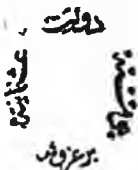 دولت
عثمانیه
بر غروش